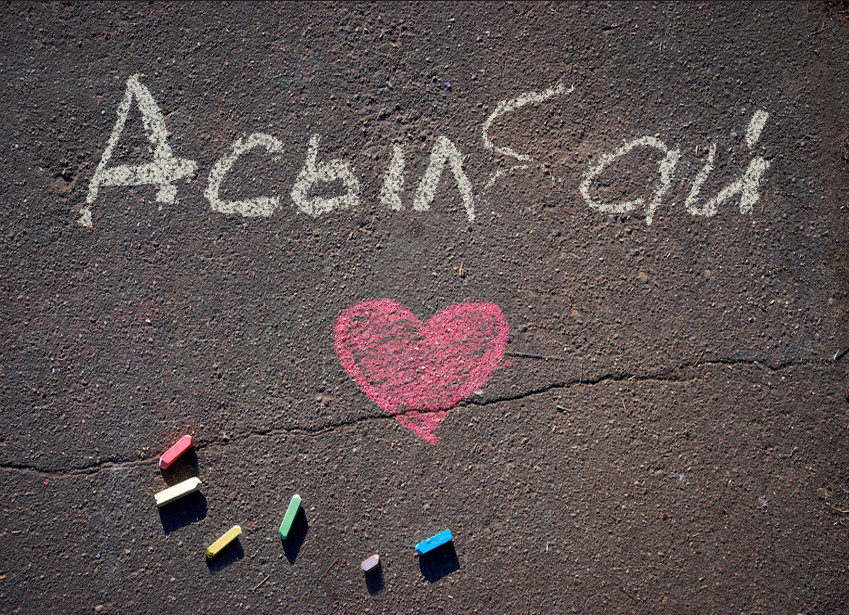 Асылбай